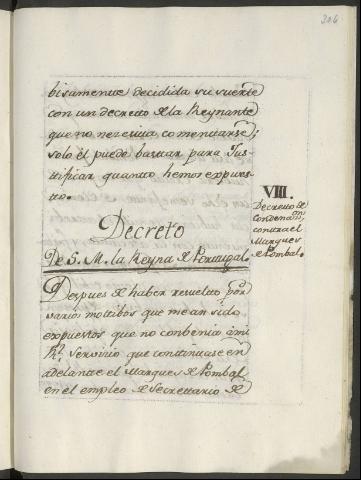 206
bisamente decidida su suerte
con un decreto de la Reynante
que no necesita comentarse;
solo él puede bastar para Jus-
tificar quanto hemos expues-
to.
VIII.
Decreto de
Condenaⁿ
contra el
Marques
de Pombal.
Decreto
De S. M. la Reyna de Portugal.
Despues de haber resuelto por
varios motibos que me an sido
expuestos que no conbenia á mi
Rˡ. Servicio que continuase en
adelante el Marques de Pombal
en el empleo de Secretario de